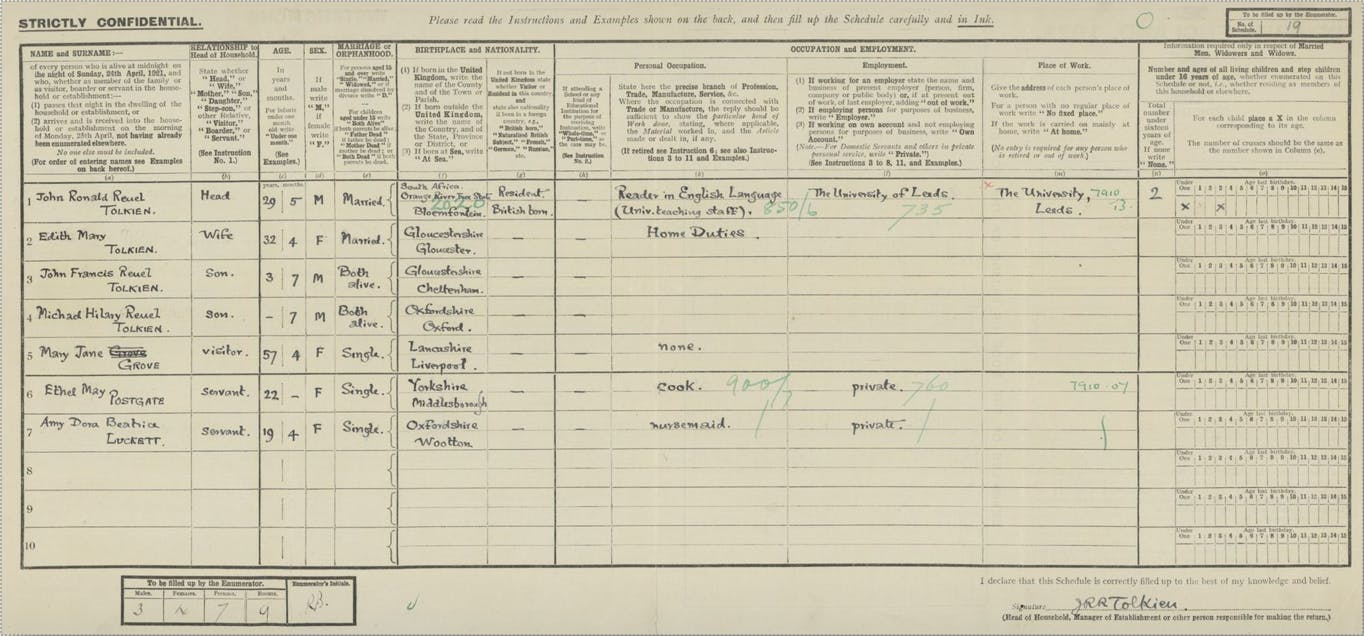 STRICTLY CONFIDENTIAL.
Please read the Instructions and Examples shown on the back, and then fill up the Schedule carefully and in Ink.
To be filled up by the Enumerator.
No. of Schedule. 19
NAME and SURNAME:—
of every person who is alive at midnight on
the night of Sunday, 24th April, 1921, and
who, whether as member of the family or
as visitor, boarder or servant in the house-
hold or establishment:—
(1) passes that night in the dwelling of the
household or establishment, or
(2) arrives and is received into the house-
hold or establishment on the morning
of Monday, 25th April, not having already
been enumerated elsewhere.
No one else must be included.
(For order of entering names see Examples
on back hereof.)
(a)
RELATIONSHIP to
Head of Household.
State whether
"Head," or
"Wife,"
"Mother," "Son,"
"Daughter,"
"Step-son," or
other Relative,
"Visitor,"
"Boarder," or
"Servant."
(See Instruction
No. 1.)
(b)
AGE.
In
years
and
months.
For infants
under one
month
old write
"Under one
month."
(See
Examples.)
(c)
SEX.
If
male
write
"M."
If
female
write
"F."
(d)
MARRIAGE or
ORPHANHOOD.
For persons aged 15
and over write
(e)
BIRTHPLACE and NATIONALITY.
(1) If born in the United
Kingdom, write the
name of the County
and of the Town or
Parish.
(2) If born outside the
United Kingdom,
write the name of
the Country, and of
the State, Province
or District, or
(3) If born at Sea, write
"At Sea."
(f)
If not born in the
United Kingdom state
whether Visitor or
Resident in this country,
and
(g)
If attending a
School or any
kind of
Educational
Institution for the
purpose of
(See Instruction
No. 2.)
(h)
OCCUPATION and EMPLOYMENT.
Personal Occupation.
State here the precise branch of Profession,
Trade, Manufacture, Service, &c.
Where the occupation is connected with
Trade or Manufacture, the reply should be
sufficient to show the particular kind of
Work done, stating, where applicable,
the Material worked in, and the Article
made or dealt in, if any.
(If retired see Instruction 6; see also Instruc-
tions 3 to 11 and Examples.)
(k)
Employment.
(1) If working for an employer state the name and
business of present employer (person, firm,
company or public body) or, if at present out
of work, of last employer, adding "out of work."
(2) If employing persons for purposes of business,
write "Employer."
(3) If working on own account and not employing
persons for purposes of business, write "Own
Account."
(Note.—For Domestic Servants and others in private
personal service, write "Private.")
(See Instructions 3 to 8, 11, and Examples.)
(l)
Place of Work.
Give the address of each person's place of
work.
For a person with no regular place of
work write "No fixed place."
If the work is carried on mainly at
home, write "At home."
(No entry is required for any person who
is retired or out of work.)
(m)
Information required only in respect of Married
Men, Widowers and Widows.
Number and ages of all living children and step children
under 16 years of age, whether enumerated on this
Schedule or not, i.e., whether residing as members of
this household or elsewhere.
Total
number
under
sixteen
years of
age.
If none
write
"None."
(n)
For each child place a X in the column
corresponding to its age.
The number of crosses should be the same as
the number shown in Column (n).
(o)
years. months.
Under One 1 2 3 4 5 6 7 8 9 10 11 12 13 14 15
Age last birthday.
1 John Ronald Reuel TOLKIEN. Head 29 5 M Married. South Africa. Orange River Free State Bloemfontein. Resident British born. Reader in English Language (Univ. teaching staff). 850/6 The University of Leeds. 735 The University, Leeds. 7910 13 2 x x
2 Edith Mary TOLKIEN. Wife 32 4 F Married. Gloucestershire Gloucester. — — Home Duties.
3 John Francis Reuel TOLKIEN. Son. 3 7 M Both alive. Gloucestershire Cheltenham. — —
4 Michael Hilary Reuel TOLKIEN. Son. – 7 M Both alive. Oxfordshire Oxford. — —
5 Mary Jane Grove GROVE visitor. 57 4 F Single. Lancashire Liverpool. — — none.
6 Ethel May POSTGATE Servant. 22 – F Single. Yorkshire Middlesborough — — cook. 900/ private. 760 7910-07
7 Amy Dora Beatrice LUCKETT. Servant. 19 4 F Single. Oxfordshire Wootton. — — nursemaid. private.
8
9
10
To be filled up by the Enumerator.
Males. Females. Persons. Rooms.
3 4 7 9
Enumerator's Initials.
RB.
I declare that this Schedule is correctly filled up to the best of my knowledge and belief.
Signature JRRTolkien.
(Head of Household, Manager of Establishment or other person responsible for making the return.)